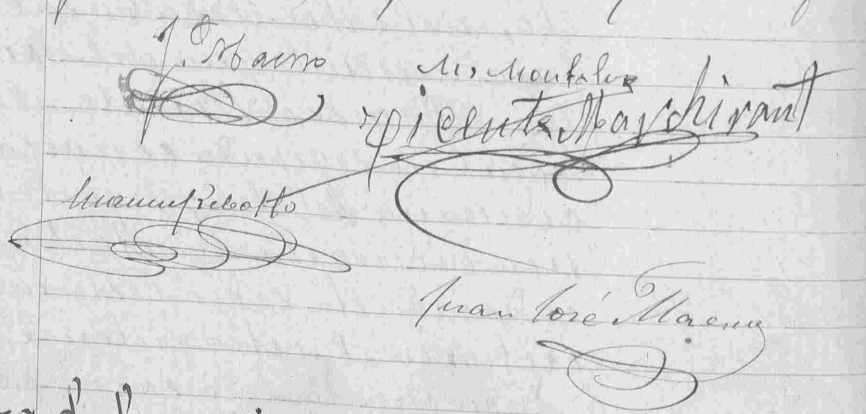 J. Maero
M. Montalva
Vicente Marchirant
Manuel Rebollo
Juan José Maero